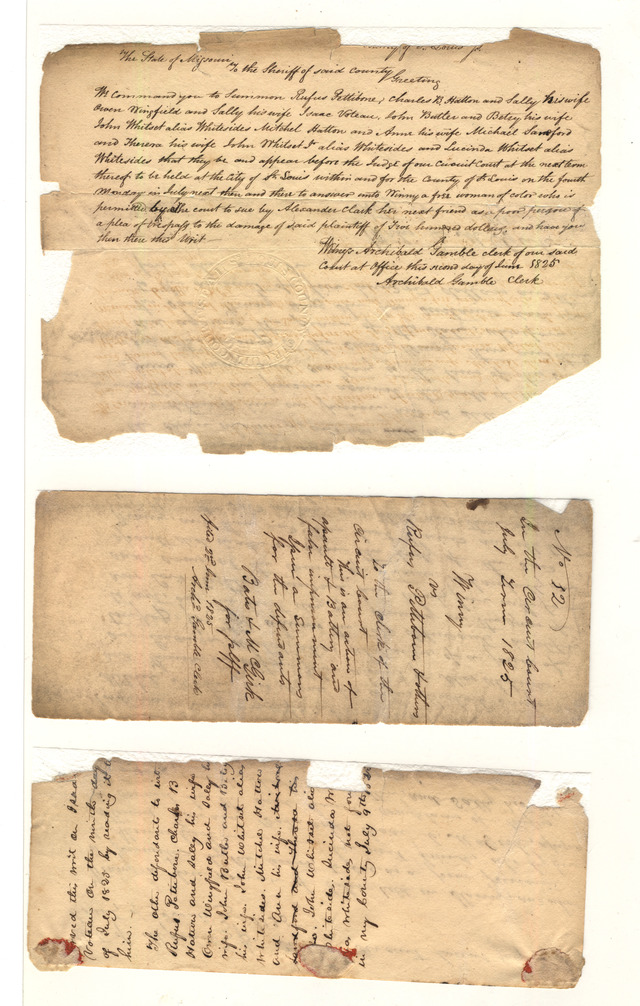 County of St. Louis
The State of Missouri
To the Sheriff of said county Greeting
We Command you to Summon Rufus Pettibone, Charles B. Hatton and Sally his wife
Owen Wingfield and Sally his wife Isaac Voteau, John Butler and Betsy his wife
John Whitset alias Whitesides Mitchel Hatton and Anna his wife Michael Sanford
and Theresa his wife John Whitset Jr alias Whitesides and Lucinda Whitset alias
Whitesides that they be and appear before the Judge of our Circuit Court at the next term
thereof to be held at the City of St Louis within and for the County of St Louis on the fourth
Monday in July next then and there to answer unto Winny a free woman of color who is
permitted by the court to sue by Alexander Clark her next friend as a poor person of
a plea of trespass to the damage of said plaintiff of Five hundred dollars, and have you
then there this Writ
Witness Archibald Gamble clerk of our said
Court at Office this second day of June 1825
Archibald Gamble Clerk
No 32
In the Circuit Court
July Term 1825
Winny
vs
Rufus Pettibone & others
To the Clerk of the
Circuit Court
This is an action of
assault & Battery and
false imprisonment
Issue a Summons
for the defendants
for plff
Clerk
ved this writ on Isaac
Voteau on the ninth day
of July 1825 by reading it to
him. —
The other defendants to wit
Rufus Pettibone, Charles B
Hatton and Sally his wife
Owen Wingfield and Sally his
wife. John Butler and Betsy
his wife. John Whitset alias
Whitesides. Mitchel Hatton
and Ann his wife.
Sandford and Theresa his
John Whitset alias
Whiteside, Lucinda W
Whiteside, not found
in my County July 9th